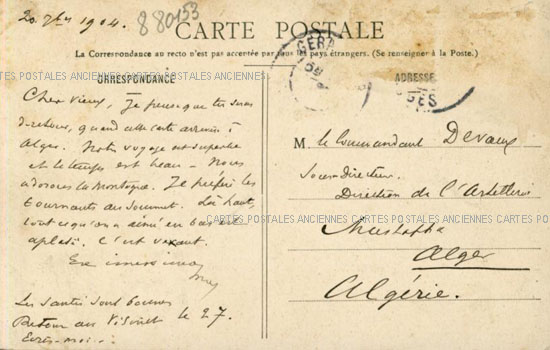 20 7bre 1904.
880153
CARTE POSTALE
La Correspondance au recto n'est pas acceptée par tous les pays étrangers. (Se renseigner à la Poste.)
CORRESPONDANCE
ADRESSE
CARTES POSTALES ANCIENNES CARTES POSTALES ANCIENNES CARTES POSTALES ANCIENNES CARTES POSTALES ANCIENNES
Cher vieux, Je pense que tu seras
de retour, quand cette carte arrivera à
Alger. Notre voyage superbe
et le temps est beau - Nous
adorons la montagne. Je préfère les
tournants au sommet. Là haut,
tout ce qu'on a aimé en bas est
aplati. C'est vexant.
Les santés sont bonnes
Retour au Vésinet le 27.
M. le Commandant Devaux
Sous-directeur
Direction de l'Artillerie
Mustapha
Alger
Algérie.
CARTES POSTALES ANCIENNES CARTES POSTALES ANCIENNES CARTES POSTALES
GERA